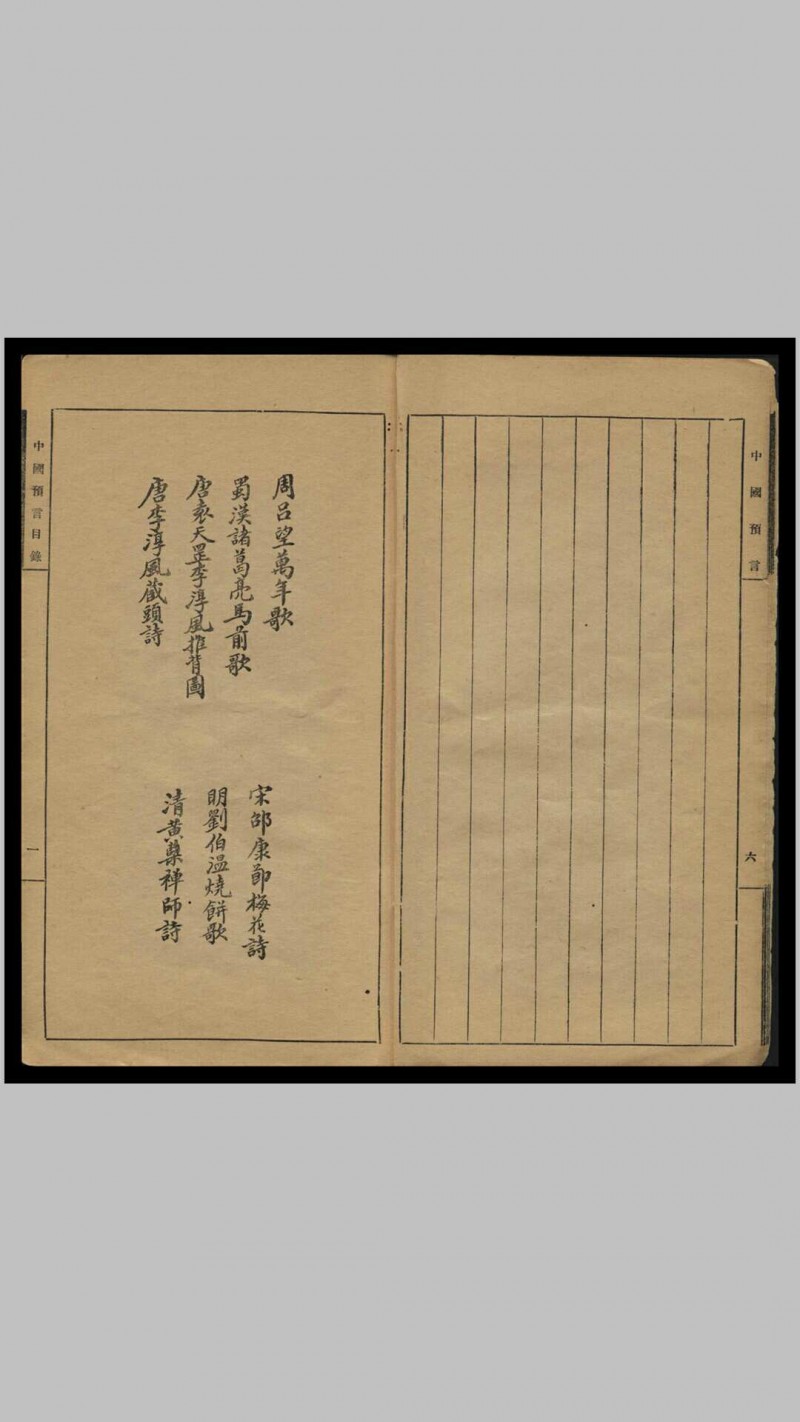 中國預言
六
周呂望萬年歌
蜀漢諸葛亮馬前歌
唐袁天罡李淳風推背圖
唐李淳風藏頭詩
宋邵康節梅花詩
明劉伯溫燒餅歌
清黃蘗禪師詩
中國預言目錄
一